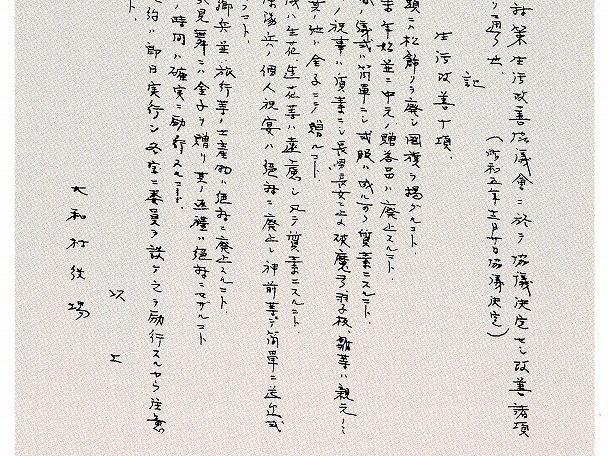 対策生活改善協議會ニ於テ協議決定セシ改善諸項
通リ也 （昭和五年三月廿日協議決定）
記
生活改善十項.
頭ニ松飾リヲ廃シ国旗ヲ掲グルコト.
末年始並ニ中元ノ贈答品ハ廃止スルコト
儀式ハ簡単ニシ式服ハ成ルベク質素ニスルコト.
ノ祝事ハ質素ニシ長男長女ニ止メ破魔弓羽子板、雛等ハ親元ノミ
其ノ他ハ金子ニテ贈ルコト.
儀ハ生花造花等ハ遠慮シ凡テ質素ニスルコト.
送兵ノ個人祝宴ハ絶対ニ廃止シ神前等デ簡単ニ送迎式
コト.
兵並旅行等ノ土産物ハ絶対ニ廃止スルコト.
見舞ニハ金子ヲ贈リ其ノ返禮ハ絶対ニセザルコト
ノ時間ハ確実ニ励行スルコト.
約ハ即日実行シ各字ニ委員ヲ設ケ之ヲ励行スルカラ注意
ト.
以上
大和村役場